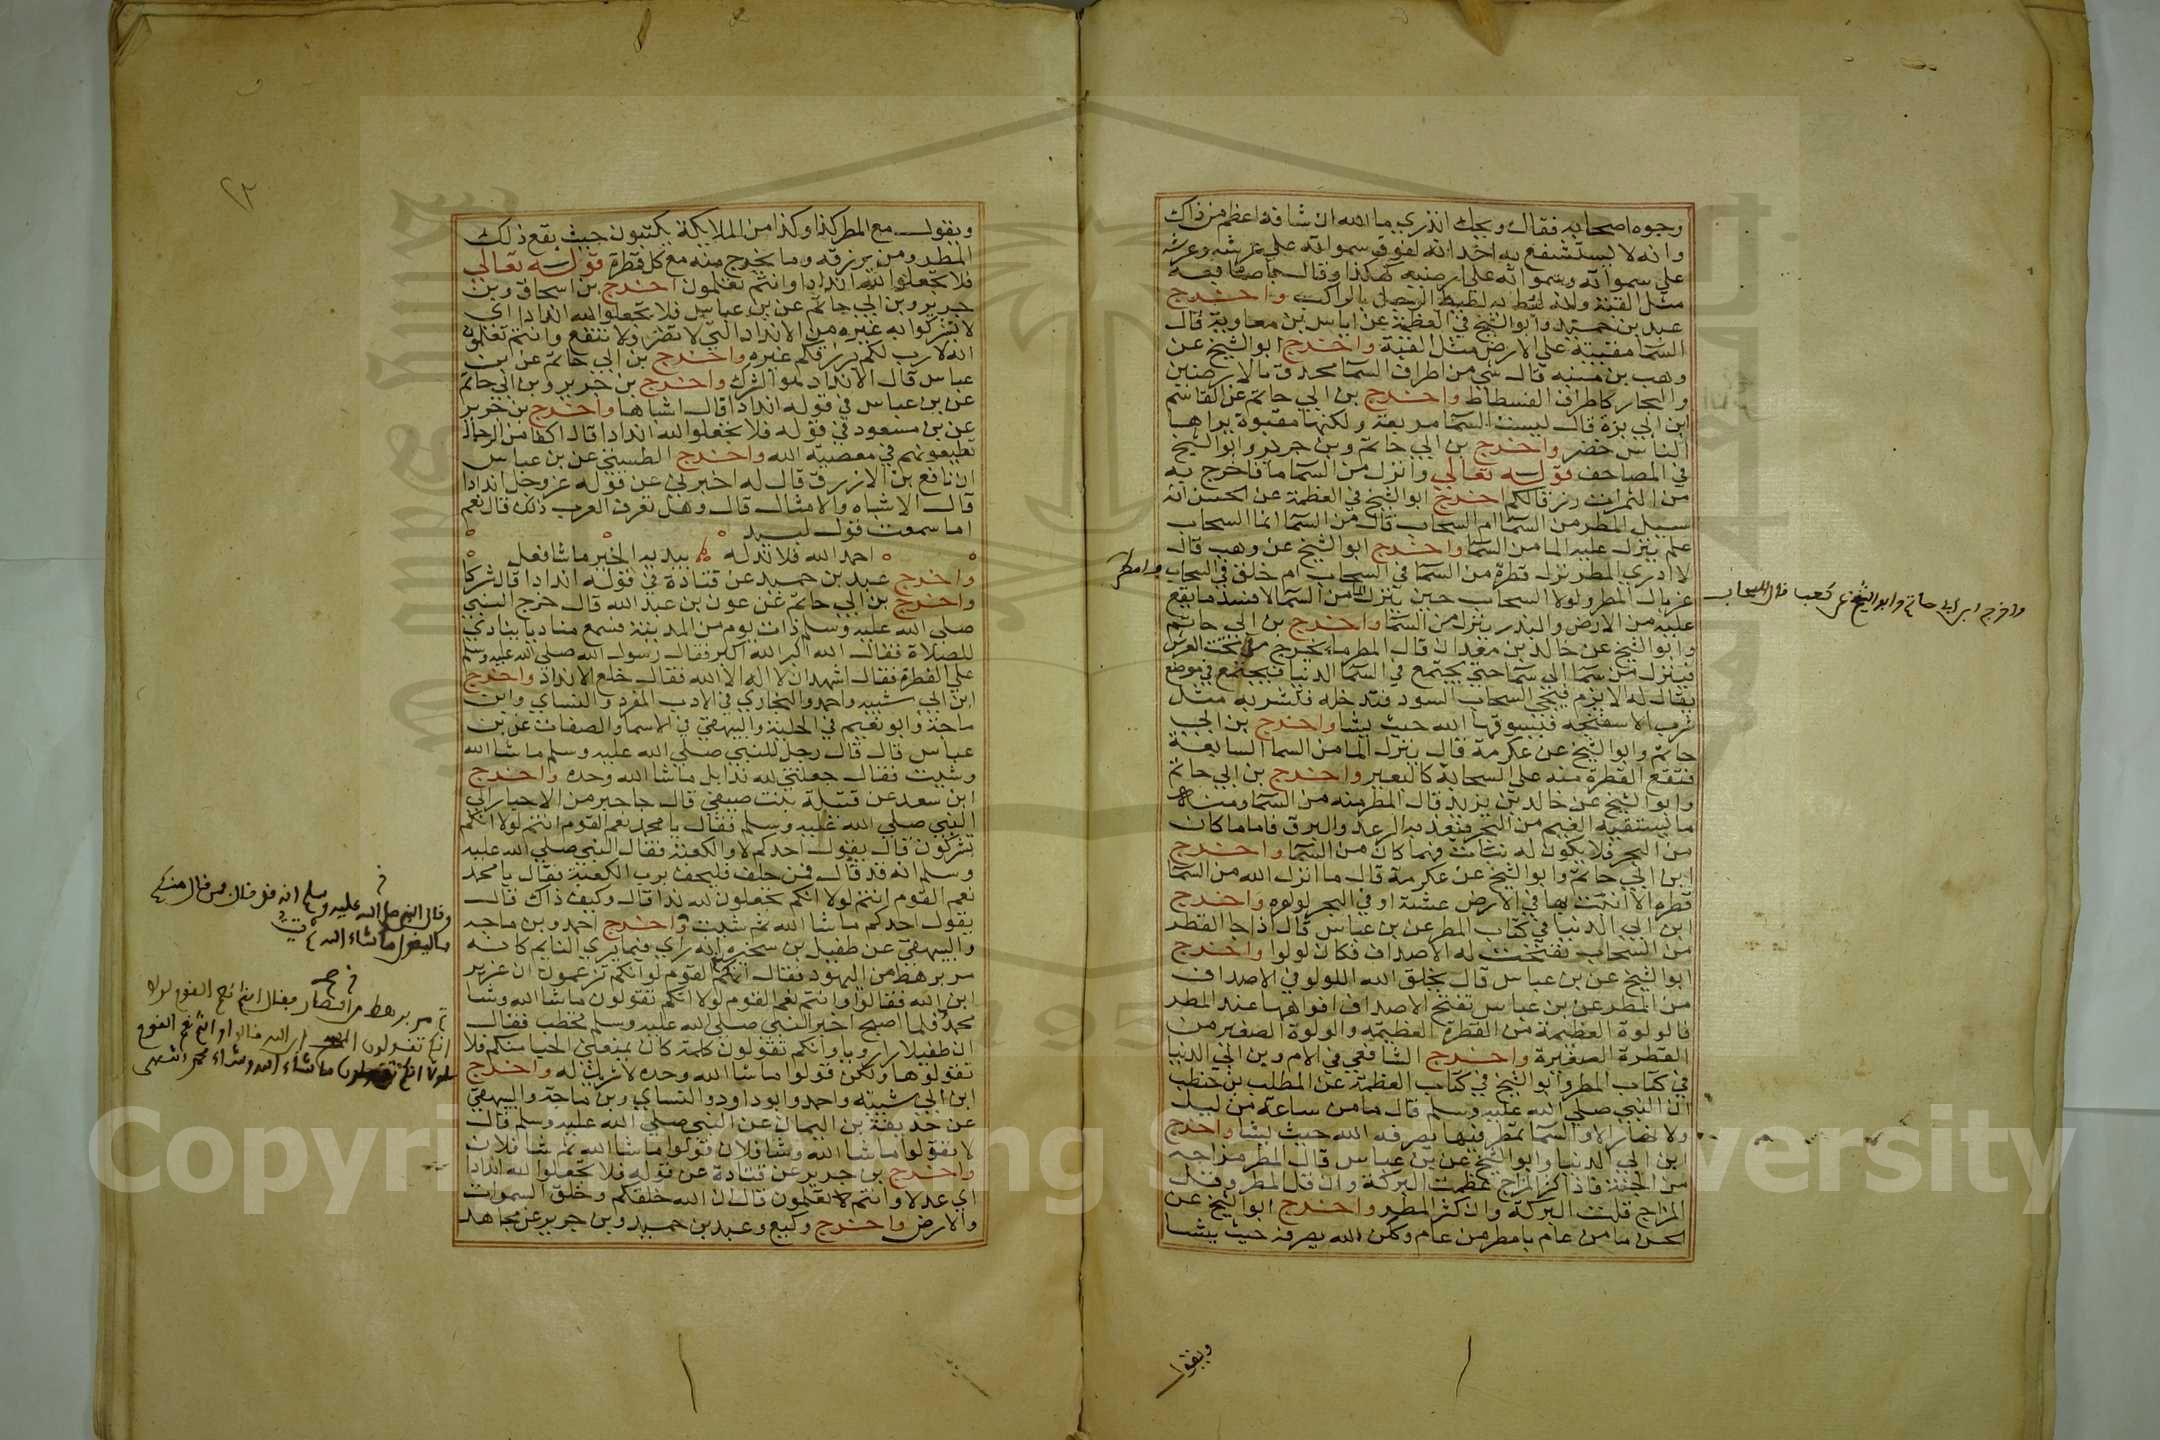 وجوه اصحابه فقال ويحك اتدري ما الله ان شانه اعظم من ذاك
وانه لا يستشفع به احد انه لفوق سمواته علي عرشه وعرشه
علي سمواته وسمواته علي ارضيه هكذا وقال باصابعه
مثل القبة وانه ليئط به اطيط الرحل بالراكب واخرج
عبد بن حميد وابو الشيخ في العظمة عن اياس بن معاوية قال
السما مقببة علي الارض مثل القبة واخرج ابو الشيخ عن
وهب بن منبه قال شي من اطراف السما محدق بالارضين
والبحار كاطراف الفسطاط واخرج بن ابي حاتم عن القاسم
ابن ابي بزة قال ليست السما مربعة ولكنها مقبوة يراها
الناس خضر واخرج بن ابي حاتم وبن جرير وابو الشيخ
في المصاحف قوله تعالي وانزل من السما ما فاخرج به
من الثمرات رزقا لكم اخرج ابو الشيخ في العظمة عن الحسن انه
سيل المطر من السما ام السحاب قال من السما انما السحاب
علم ينزل عليه الما من السما واخرج ابو الشيخ عن وهب قال
لا ادري المطر نزل قطرة من السما في السحاب ام خلق في السحاب فامطر
واخرج ابن ابي حاتم وابو الشيخ عن كعب قال السحاب
غربال المطر ولولا السحاب حين ينزل الما من السما لافسد ما يقع
عليه من الارض والبذر ينزل من السما واخرج بن ابي حاتم
وابو الشيخ عن خالد بن معدان قال المطر ما يخرج من تحت العرش
فينزل من سما الي سما حتي يجتمع في السما الدنيا فيجتمع في موضع
يقال له الايزم فيجي السحاب السود فتدخله فتشربه مثل
شرب الاسفنجه فيسوقها الله حيث يشا واخرج بن ابي
حاتم وابو الشيخ عن عكرمة قال ينزل الما من السما السابعة
فتقع القطرة منه علي السحابة كالبعير واخرج بن ابي حاتم
وابو الشيخ عن خالد بن يزيد قال المطر منه من السما ومنه
ما يستقيه الغيم من البحر فيعذبه الرعد والبرق فاما ما كان
من البحر فلا يكون له نبات وما كان من السما واخرج
ابن ابي حاتم وابو الشيخ عن عكرمة قال ما انزل الله من السما
قطرة الا انبت بها في الارض عشبة او في البحر لولوه واخرج
ابن ابي الدنيا في كتاب المطر عن بن عباس قال اذا جا القطر
من السحاب تفتحت له الاصداف فكان لولوا واخرج
ابو الشيخ عن بن عباس قال يخلق الله اللولو في الاصداف
من المطر عن بن عباس تفتح الاصداف افواهها عند المطر
فالولوة العظيمة من القطرة العظيمه والولوة الصغير من
القطرة الصغيرة واخرج الشافعي في الام وبن ابي الدنيا
في كتاب المطر وابو الشيخ في كتاب العظمة عن المطلب بن حنطب
ان النبي صلي الله عليه وسلم قال ما من ساعة من ليل
ولا نهار الا والسما تمطر فيها يصرفه الله حيث يشا واخرج
ابن ابي الدنيا وابو الشيخ عن بن عباس قال المطر مزاجه
من الجنة فاذا كثر المزاج عظمت البركة وان قل المطر وقل
المزاج قلت البركة وان كثر المطر واخرج ابو الشيخ عن
الحسن ما من عام بامطر من عام ولكن الله يصرفه حيث يشا
ويقول
ويقول مع المطر كذا وكذا من الملايكة يكتبون حيث يقع ذلك
المطر ومن يرزقه وما يخرج منه مع كل قطرة قوله تعالي
فلا تجعلوا لله اندادا وانتم تعلمون اخرج بن اسحاق وبن
جرير وبن ابي حاتم عن بن عباس فلا تجعلوا لله اندادا اي
لا تشركوا به غيره من الانداد التي لا تضر ولا تنفع وانتم تعلمون
انه لا رب لكم يرزقكم غيره واخرج بن ابي حاتم عن ابن
عباس قال الانداد هو الشرك واخرج بن جرير وبن ابي حاتم
عن بن عباس في قوله اندادا قال اشباها واخرج بن جرير
عن بن مسعود في قوله فلا تجعلوا لله اندادا قال اكفا من الرجال
تطيعونهم في معصية الله واخرج الطستي عن بن عباس
ان نافع بن الازرق قال له اخبرني عن قوله عز وجل اندادا
قال الاشباه والامثال قال وهل تعرف العرب ذلك قال نعم
اما سمعت قول لبيد
احمد الله فلا ند له بيديه الخير ما شا فعل
واخرج عبد بن حميد عن قتادة في قوله اندادا قال شركا
واخرج بن ابي حاتم عن عون بن عبد الله قال خرج النبي
صلي الله عليه وسلم ذات يوم من المدينة فسمع مناديا ينادي
للصلاة فقال الله اكبر الله اكبر فقال رسول الله صلي الله عليه وسلم
علي الفطرة فقال اشهد ان لا اله الا الله فقال خلع الانداد واخرج
ابن ابي شيبه واحمد والبخاري في الادب المفرد والنساي وابن
ماجة وابو نعيم في الحلية والبيهقي في الاسما والصفات عن بن
عباس قال قال رجل للنبي صلي الله عليه وسلم ما شا الله
وشيت فقال جعلتني لله ندا بل ما شا الله وحده واخرج
ابن سعد عن قتيلة بنت صيفي قال جا حبر من الاحبار الي
النبي صلي الله عليه وسلم فقال يا محمد نعم القوم انتم لولا انكم
تشركون قال يقول احدكم لا والكعبة فقال النبي صلي الله عليه
وسلم انه قد قال فمن حلف فليحلف برب الكعبة فقال يا محمد
نعم القوم انتم لولا انكم تجعلون لله ندا قال وكيف ذاك قال
يقول احدكم ما شا الله ثم شيت واخرج احمد وبن ماجه
والبيهقي عن طفيل بن سخبره انه راي فيما يري النايم كانه
مر برهط من اليهود فقال انتم القوم لو انكم تزعمون ان عزير
ابن الله فقالوا وانتم نعم القوم لولا انكم تقولون ما شا الله وشا
محمد فلما اصبح اخبر النبي صلي الله عليه وسلم فخطب فقال
ان طفيلا راي رويا وانكم تقولون كلمة كان يمنعني الحيا منكم فلا
تقولوها ولكن قولوا ما شا الله وحده لا شريك له واخرج
ابن ابي شيبه واحمد وابو داود والنساي وبن ماجة والبيهقي
عن حذيفة بن اليمان عن النبي صلي الله عليه وسلم قال
لا تقولوا ما شا الله وشا فلان قولوا ما شا الله ثم شا فلان
واخرج بن جرير عن قتادة عن قوله فلا تجعلوا لله اندادا
اي عدلا وانتم لا تعلمون قال ان الله خلقكم وخلق السموات
والارض واخرج وكيع وعبد بن حميد وبن جرير عن مجاهد
وقال النبي صلى الله عليه وسلم انه قد قال فمن قال منكم
فليقل ما شاء الله ثم شيت
ثم مر برهط من النصارى فقال انتم نعم القوم لولا
انكم تقولون المسيح ابن الله قالوا وانتم نعم القوم
لولا انكم تقولون ما شاء الله وشاء محمد انتهى
Copyright © King Saud University
1957